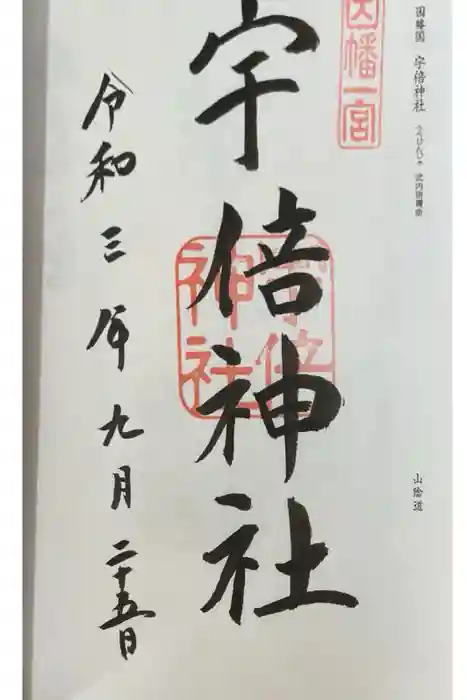 因幡国 宇倍神社 うべじんじゃ 武内宿禰命
山陰道
因幡一宮
宇倍神社
宇倍
神社
令和三年九月二十五日